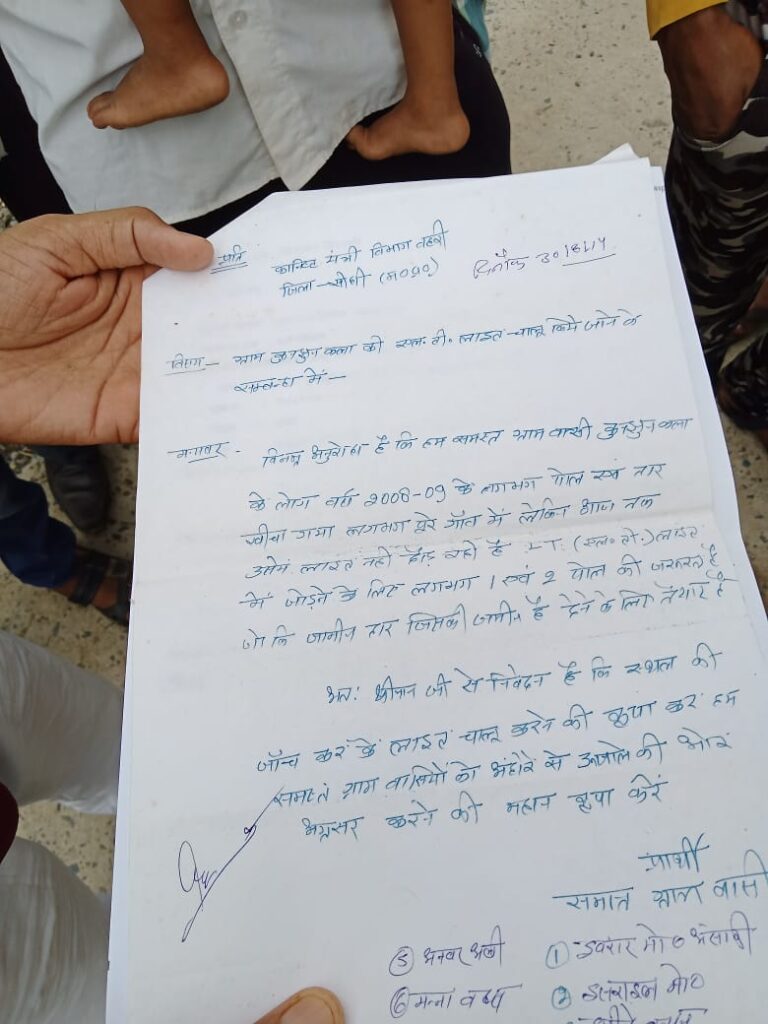 प्रति
कनिष्ट यंत्री विभाग
जिला - सीधी (म०प्र०)
दिनाँक 30/8/14
विषय - ग्राम कला की एल. टी. लाइट चालू किये जाने के
सम्बन्ध में -
मान्यवर - विनम्र अनुरोध है कि हम समस्त ग्राम वासी कला
के लोग वर्ष 2008-09 के लगभग पोल एवं तार
खीचा गया लगभग पूरे गाँव में लेकिन आज तक
उसमें लाइट नही दौड़ रही है LT. (एल. टी.) लाइट
में जोड़ने के लिए लगभग 1 एवं 2 पोल की जरूरत है
जो कि जमीन दार जिसकी जमीन है देने के लिए तैयार है
अतः श्रीमान जी से निवेदन है कि स्थल की
जाँच कर के लाइट चालू करने की कृपा कर हम
समस्त ग्राम वासियों को अंधेरे से उजाले की ओर
अग्रसर करने की महान कृपा करें
प्रार्थी
समस्त ग्राम वासी
① इकरार मो० अंसारी
② इसराइल मो०
⑤ अनवर अली
⑥